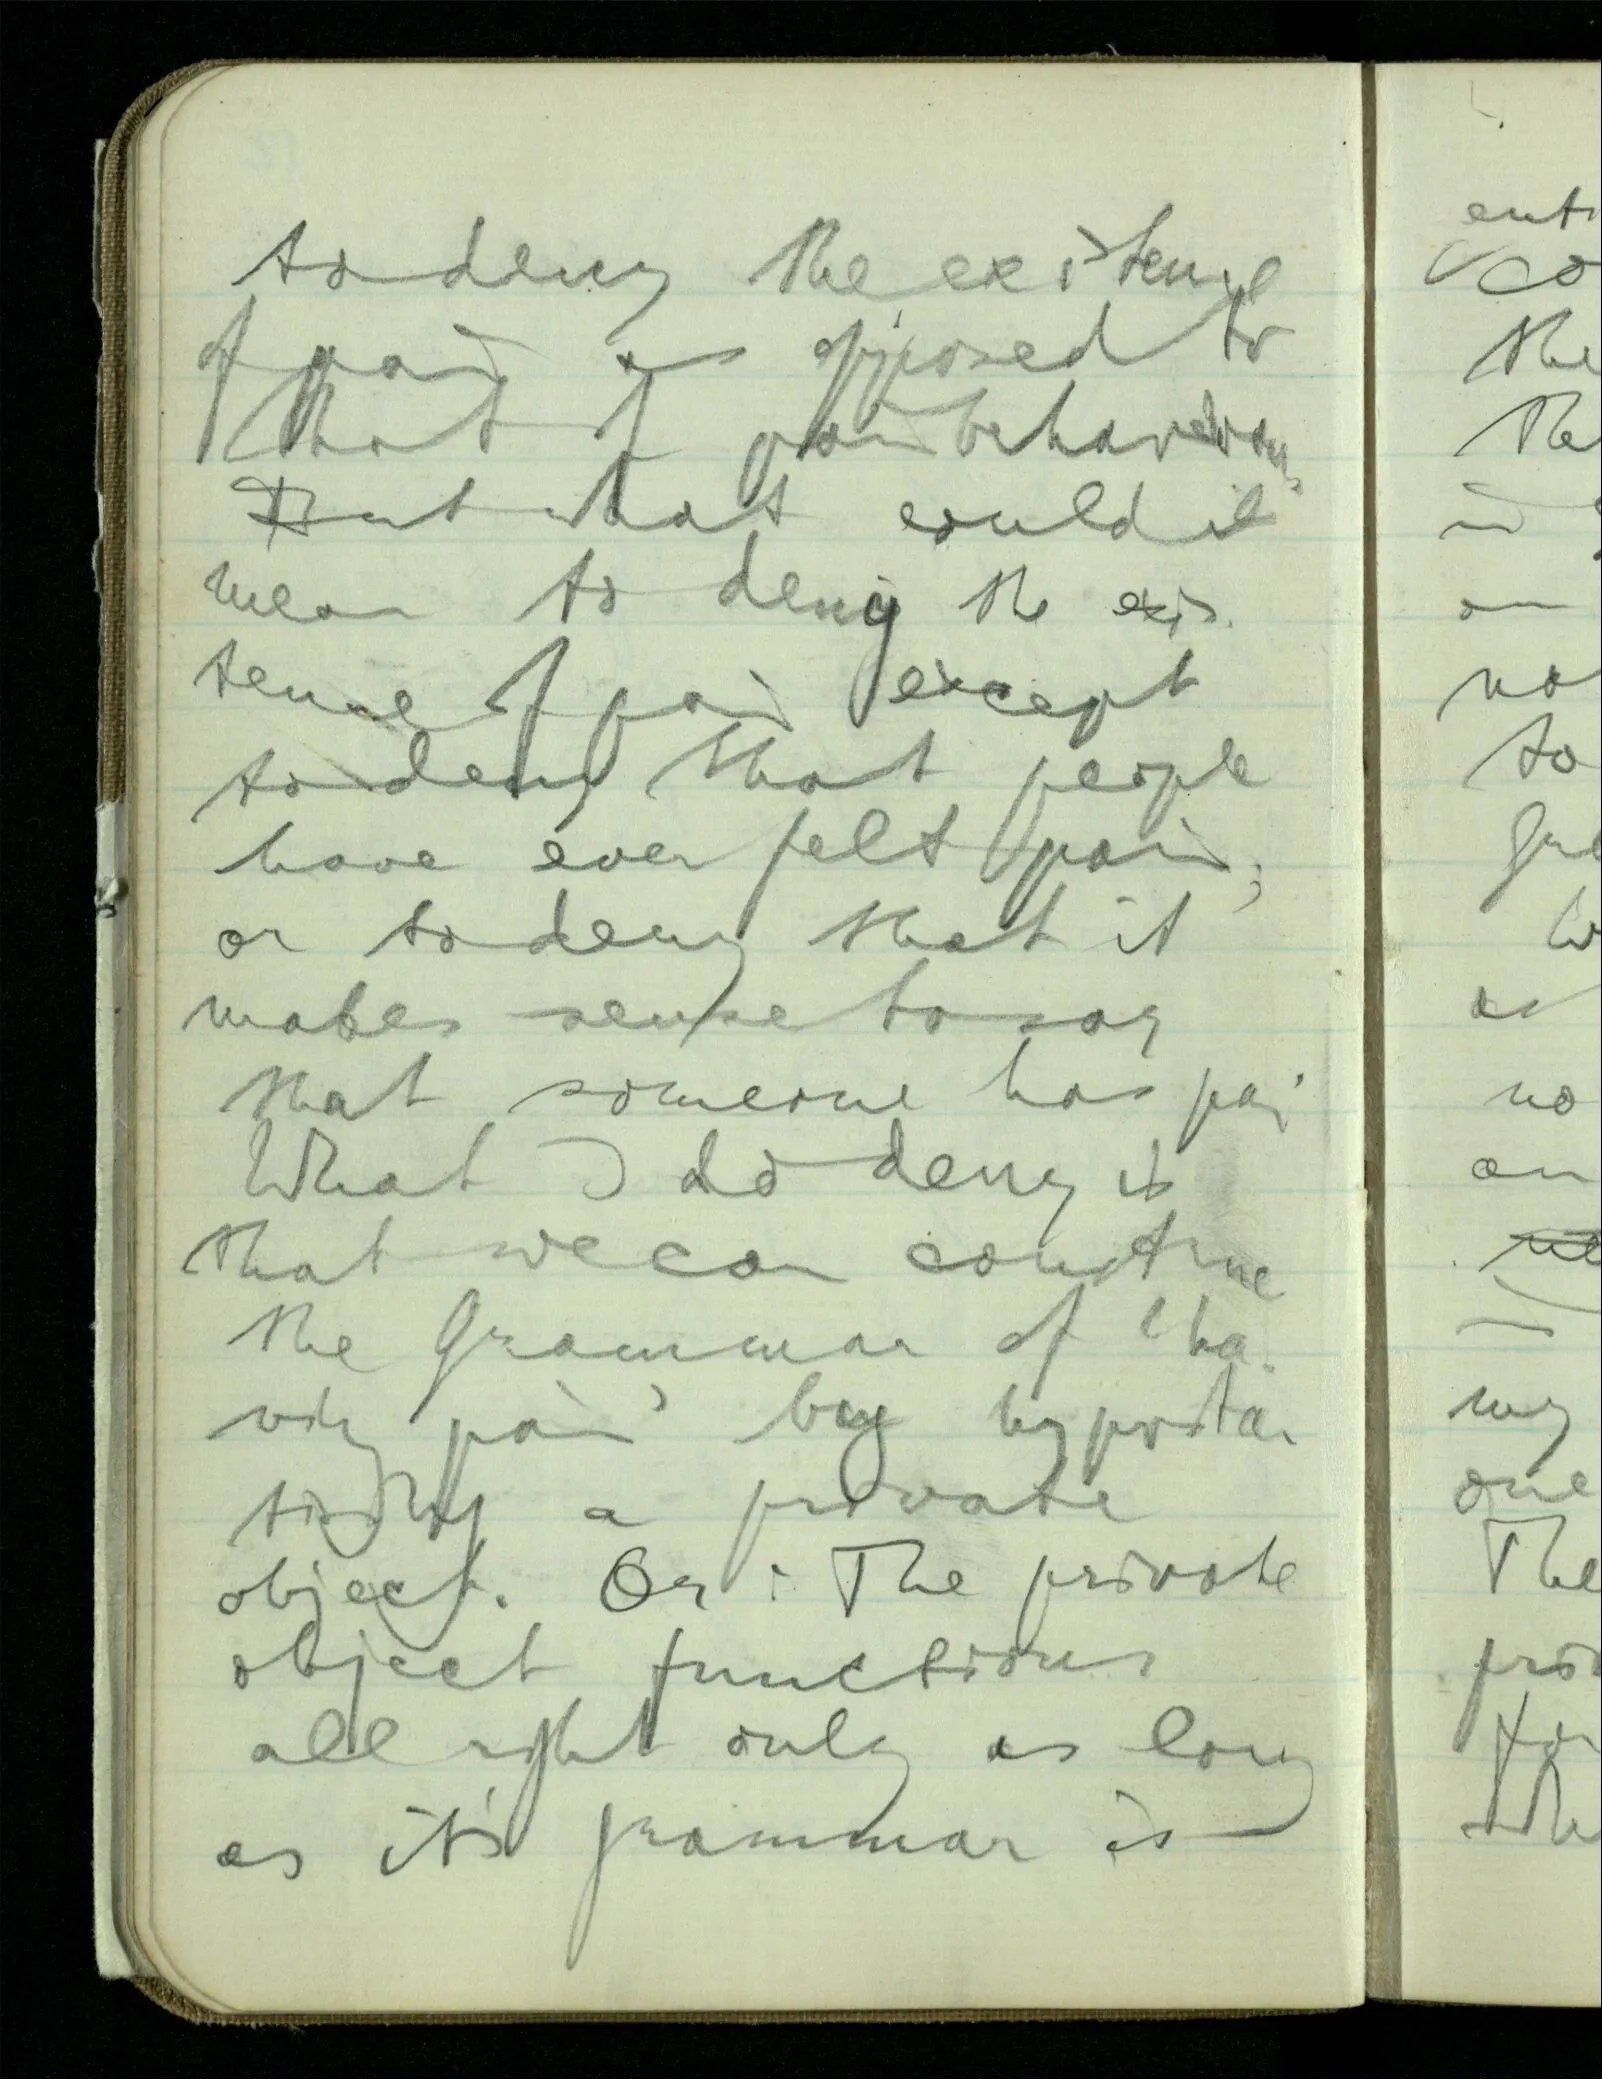 to deny the existence
of pain as opposed to
that of pain behaviour
But what could it
mean to deny the exis-
tence of pain except
to deny that people
have ever felt pain;
or to deny that it
makes sense to say
that someone has pai
What I do deny is
that we can construe
the grammar of 'ha-
ving pain' by hyposta-
tising a private
object. Or: The private
object functions
all right only as long
as it's grammar is
ent
co
the
the
in
on
no
to
gra
w
as
no
an
in
my
one
The
priv
for
the